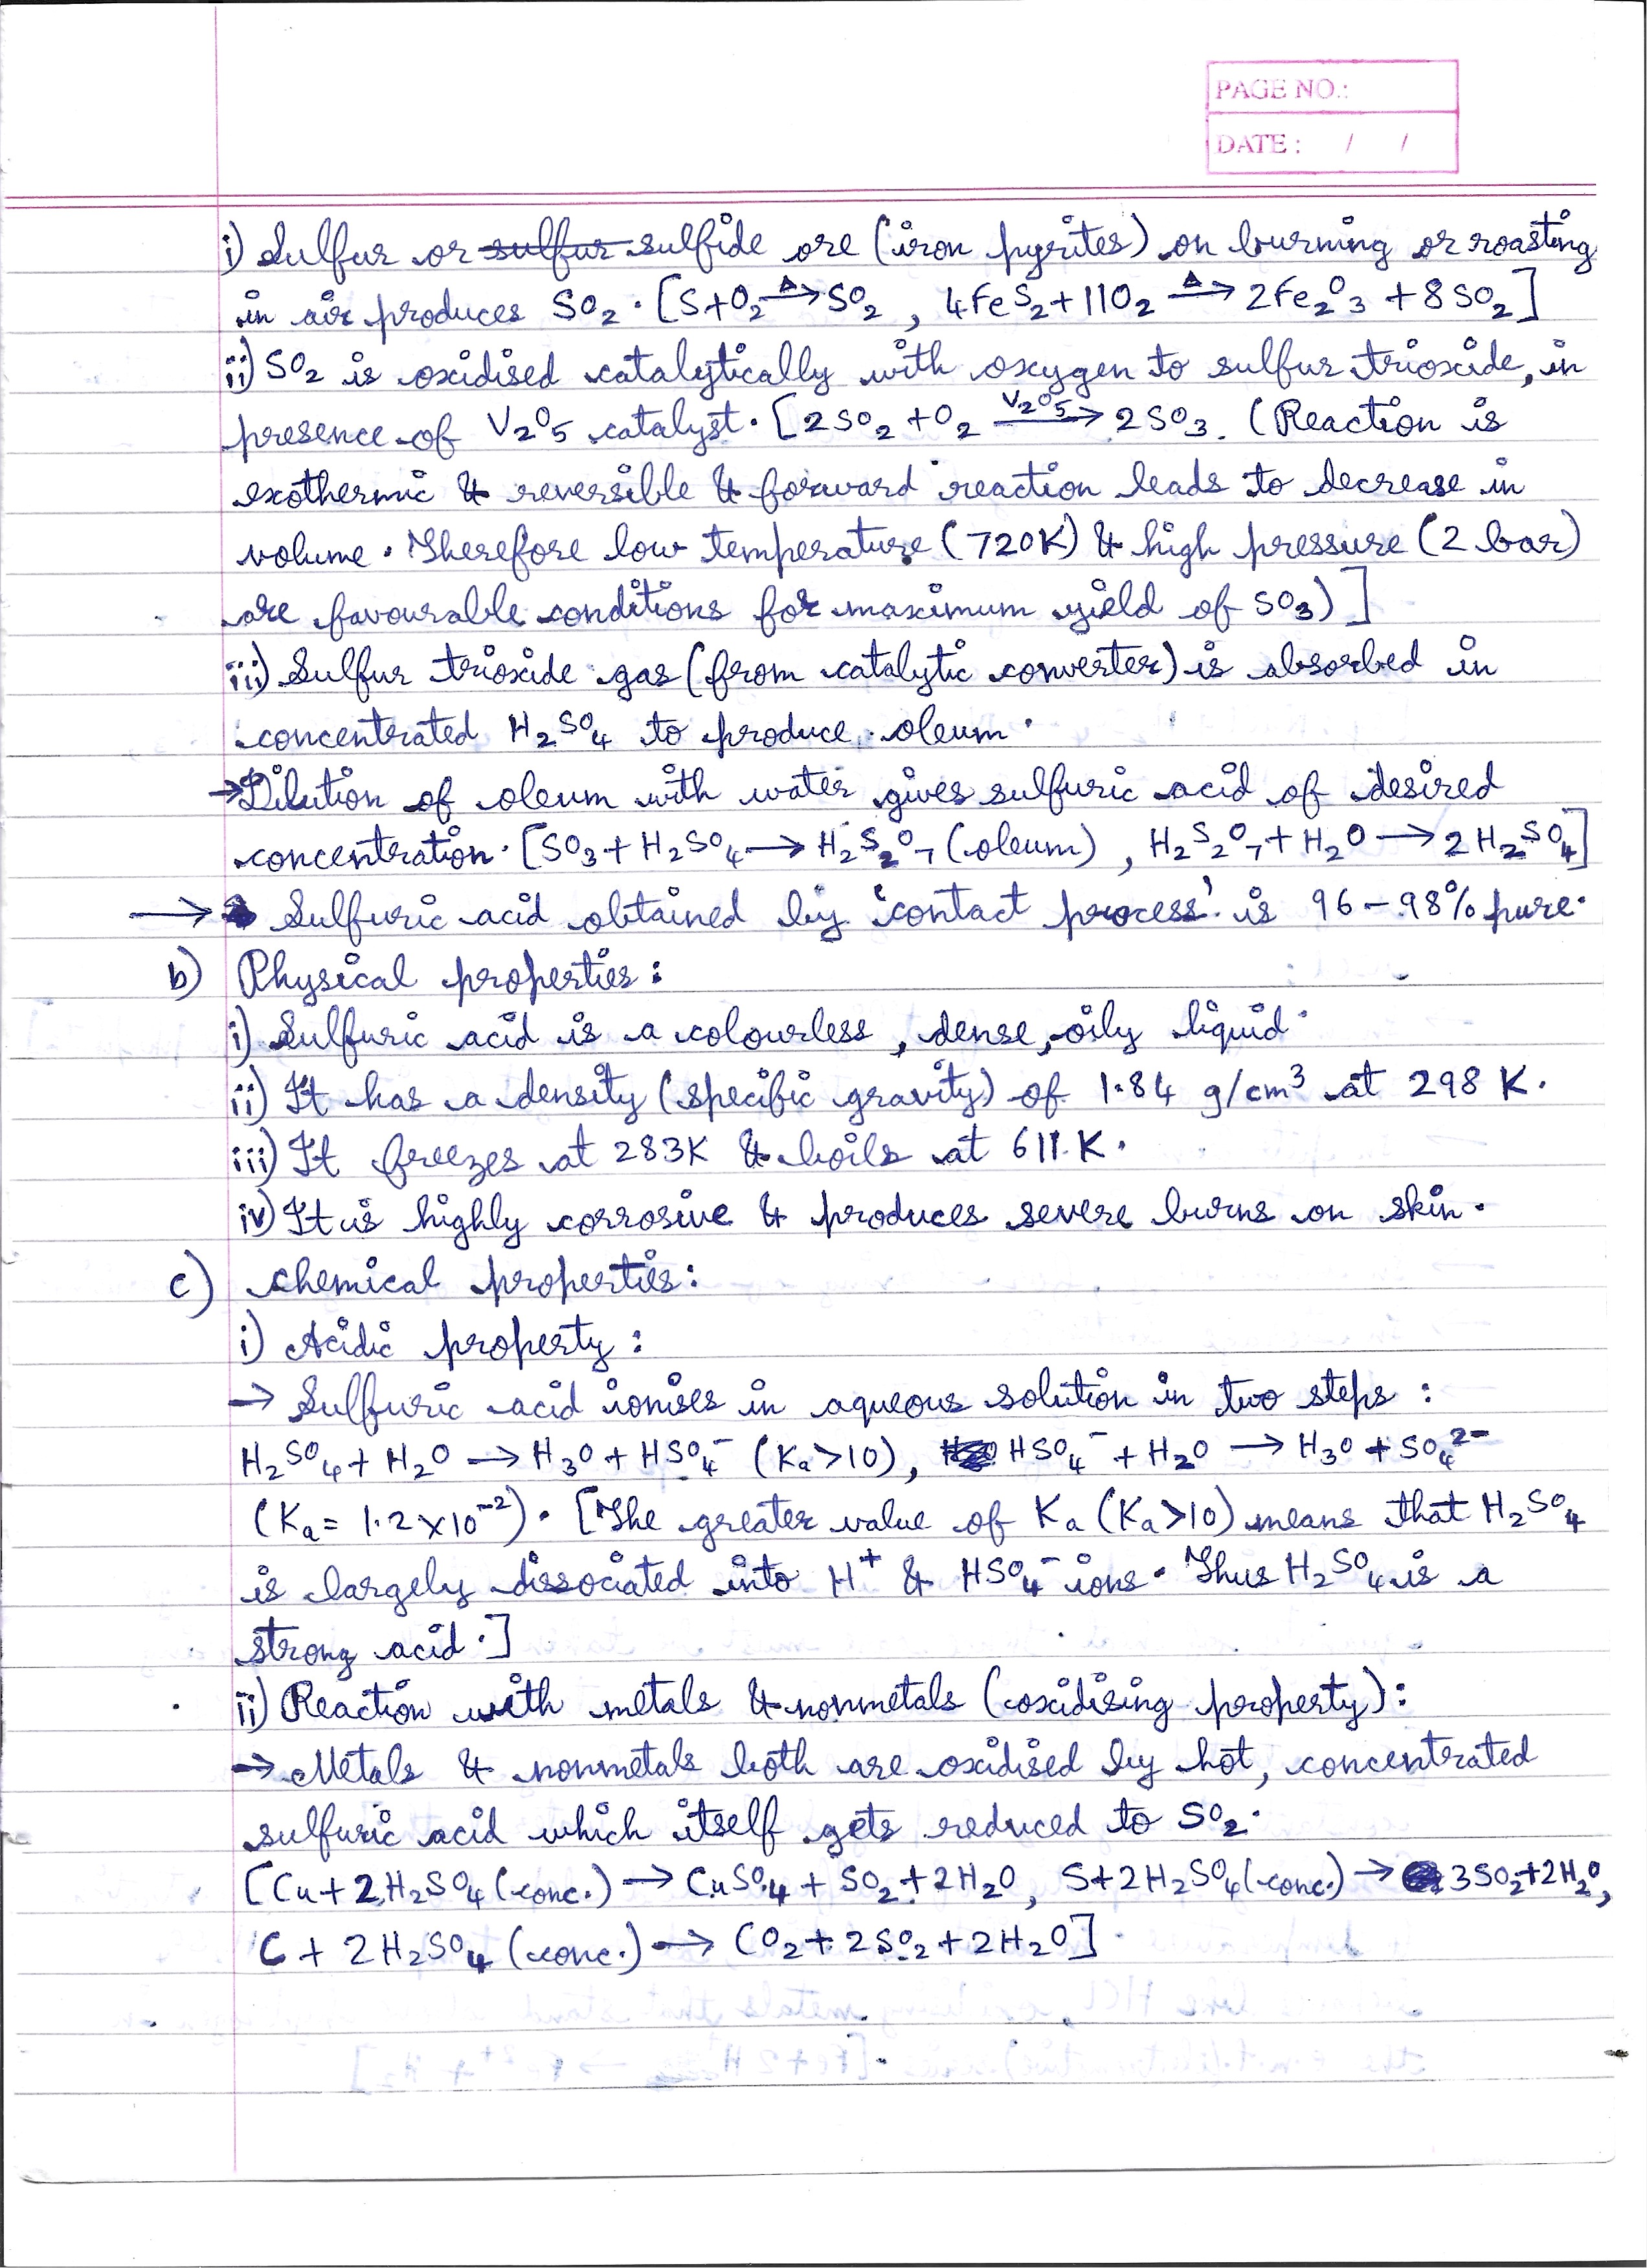 PAGE NO.:
DATE : / /
i) Sulfur or ~~sulfur~~ sulfide ore (iron pyrites) on burning or roasting
in air produces SO₂. [S+O₂ —Δ→ SO₂ , 4FeS₂+11O₂ —Δ→ 2Fe₂O₃ + 8SO₂]
ii) SO₂ is oxidised catalytically with oxygen to sulfur trioxide, in
presence of V₂O₅ catalyst. [2SO₂ + O₂ —V₂O₅→ 2SO₃. (Reaction is
exothermic & reversible & forward reaction leads to decrease in
volume. Therefore low temperature (720K) & high pressure (2 bar)
are favourable conditions for maximum yield of SO₃)]
iii) Sulfur trioxide gas (from catalytic converter) is absorbed in
concentrated H₂SO₄ to produce oleum.
→ Dilution of oleum with water gives sulfuric acid of desired
concentration. [SO₃ + H₂SO₄ → H₂S₂O₇ (oleum) , H₂S₂O₇ + H₂O → 2H₂SO₄]
→ Sulfuric acid obtained by 'contact process' is 96-98% pure.
b) Physical properties:
i) Sulfuric acid is a colourless, dense, oily liquid.
ii) It has a density (specific gravity) of 1.84 g/cm³ at 298 K.
iii) It freezes at 283K & boils at 611 K.
iv) It is highly corrosive & produces severe burns on skin.
c) chemical properties:
i) Acidic property:
→ Sulfuric acid ionises in aqueous solution in two steps :
H₂SO₄ + H₂O → H₃O + HSO₄⁻ (Kₐ>10), HSO₄⁻ + H₂O → H₃O + SO₄²⁻
(Kₐ = 1.2×10⁻²). [The greater value of Kₐ (Kₐ>10) means that H₂SO₄
is largely dissociated into H⁺ & HSO₄⁻ ions. Thus H₂SO₄ is a
strong acid.]
ii) Reaction with metals & nonmetals (oxidising property):
→ Metals & nonmetals both are oxidised by hot, concentrated
sulfuric acid which itself gets reduced to SO₂.
[Cu + 2H₂SO₄ (conc.) → CuSO₄ + SO₂ + 2H₂O, S + 2H₂SO₄ (conc.) → 3SO₂ + 2H₂O,
C + 2H₂SO₄ (conc.) → CO₂ + 2SO₂ + 2H₂O]